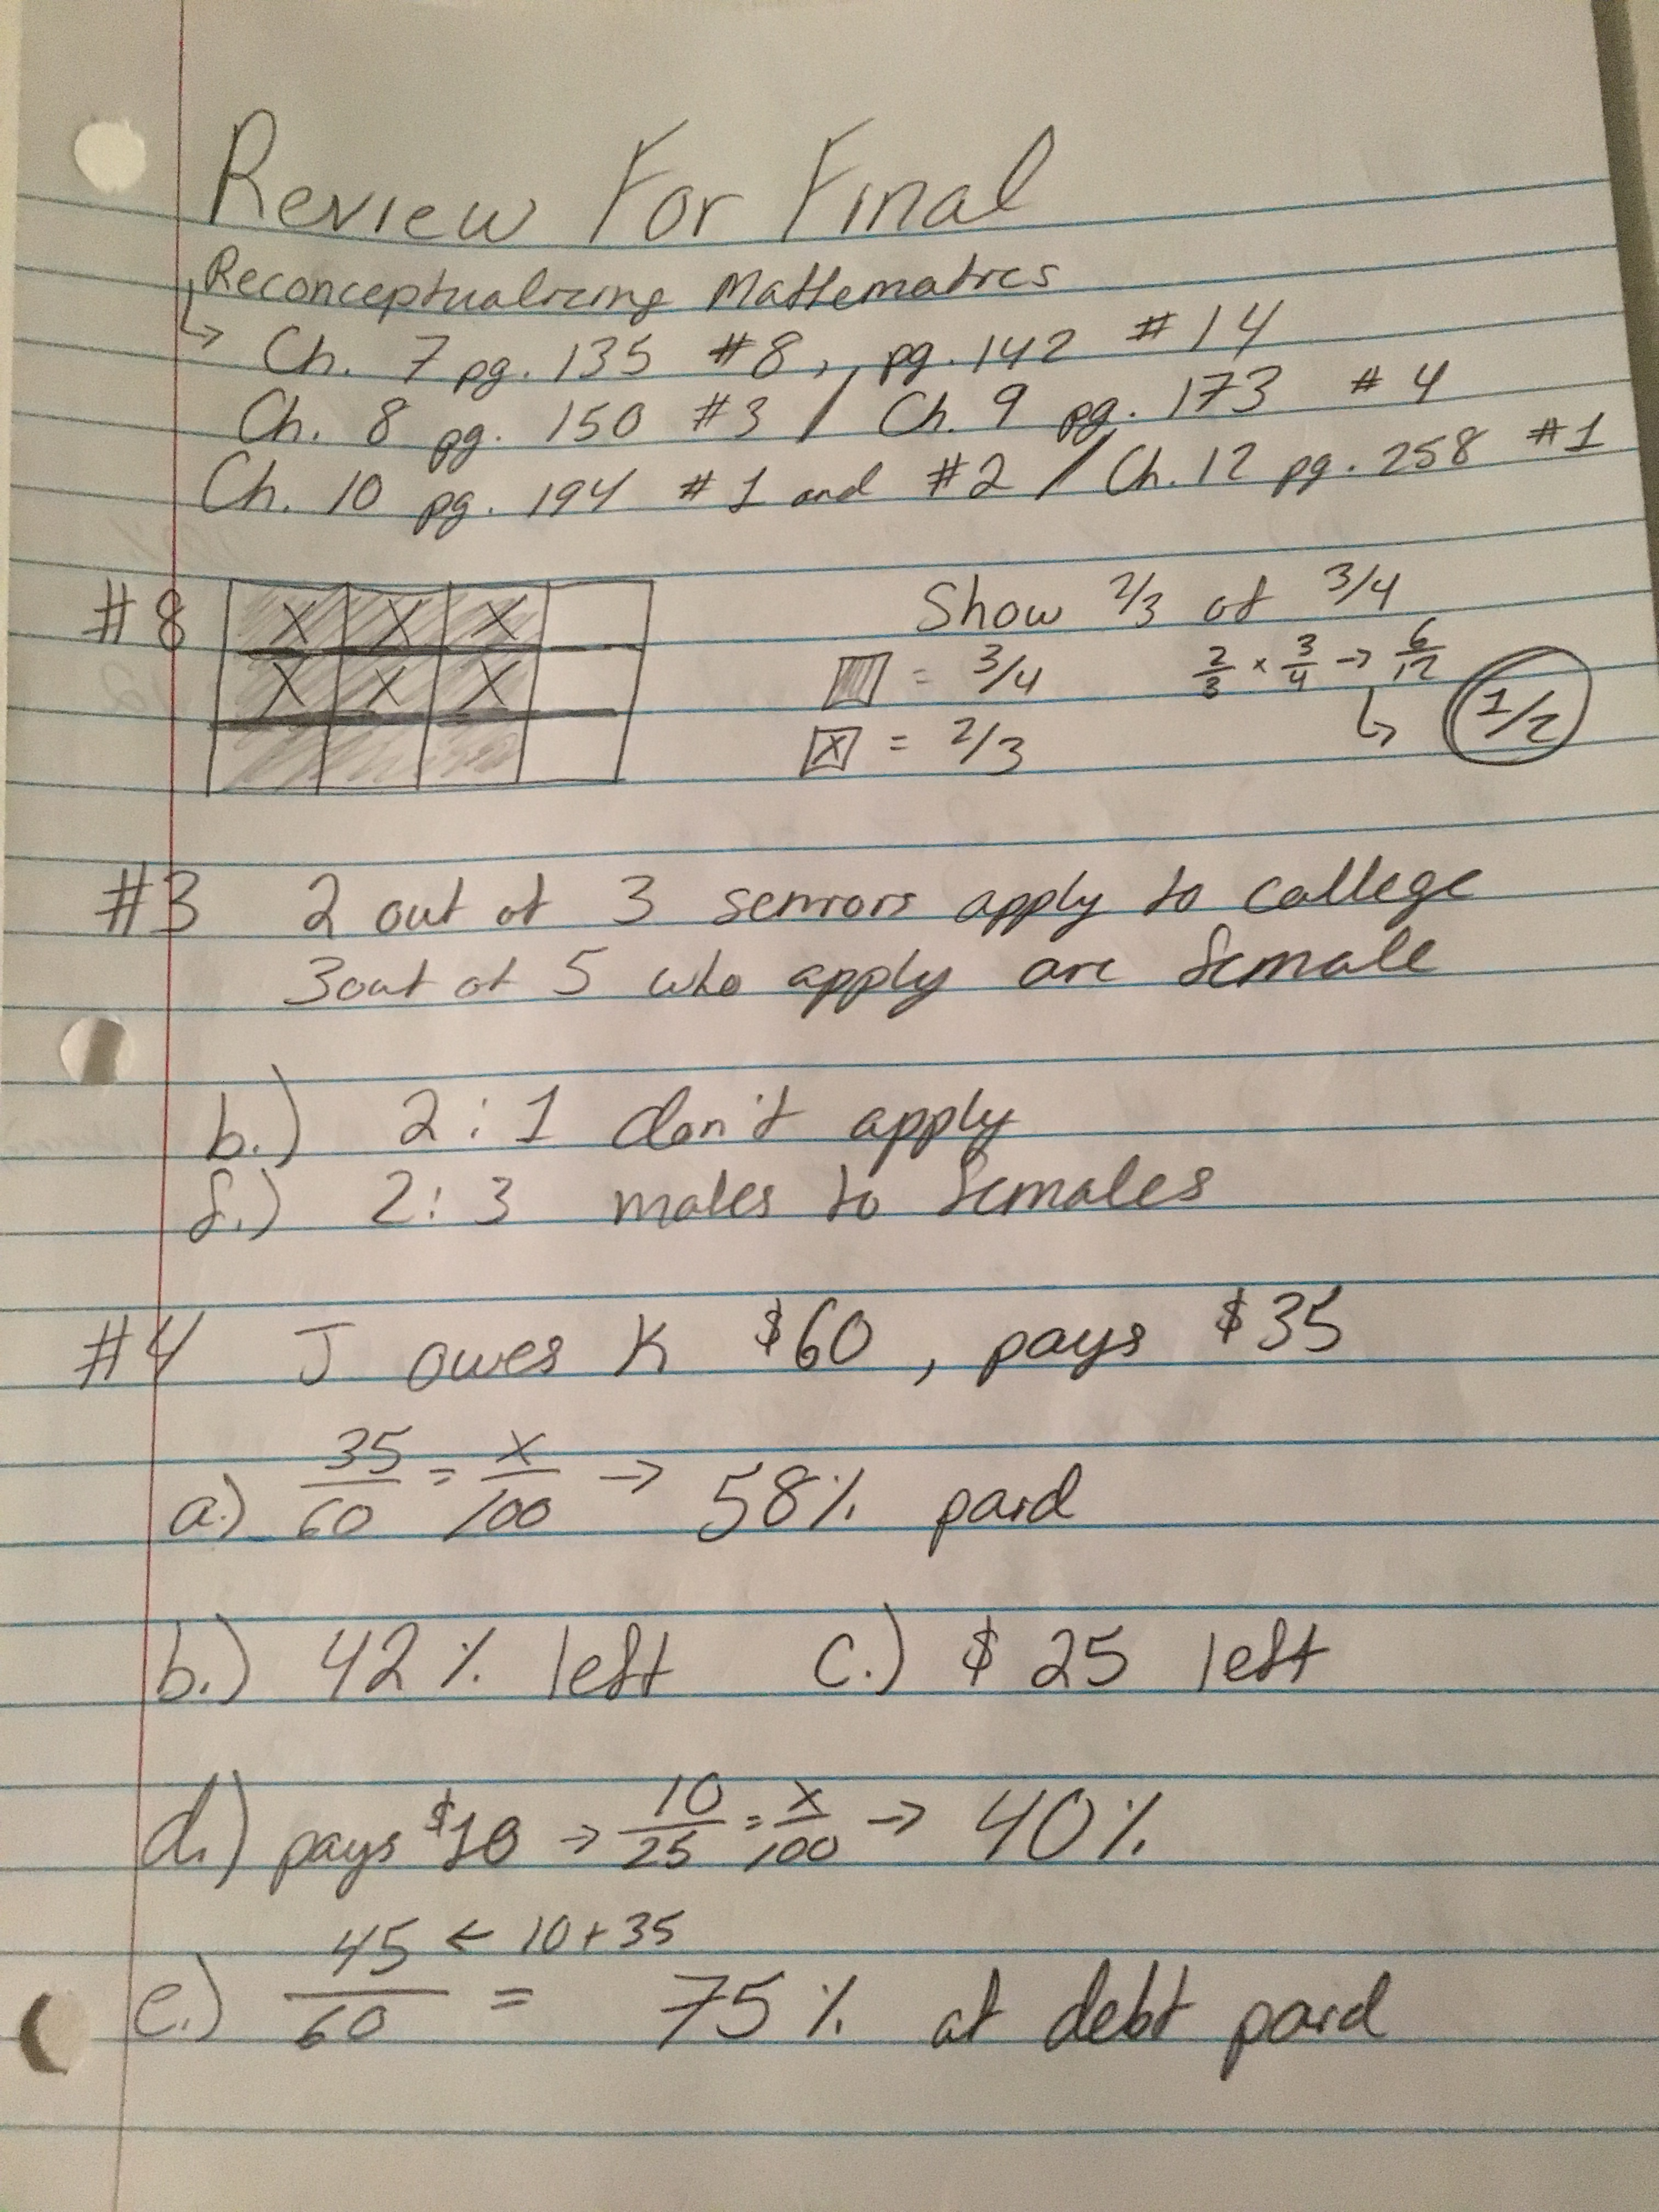 Review For Final
Reconceptualizing Mathematics
↳ Ch. 7 pg. 135 #8, pg. 142 #14
Ch. 8 pg. 150 #3 / Ch. 9 pg. 173 #4
Ch. 10 pg. 194 #1 and #2 / Ch. 12 pg. 258 #1
#8 X X X Show 2/3 of 3/4
X X X = 3/4 2/3 × 3/4 → 6/12
↳ 1/2
X = 2/3
#3 2 out of 3 seniors apply to college
3 out of 5 who apply are female
b.) 2:1 don't apply
f.) 2:3 males to females
#4 J owes K $60, pays $35
a.) 35/60 = x/100 → 58% paid
b.) 42% left c.) $25 left
d.) pays $10 → 10/25 = x/100 → 40%
e.) 45/60 ← 10+35 = 75% of debt paid